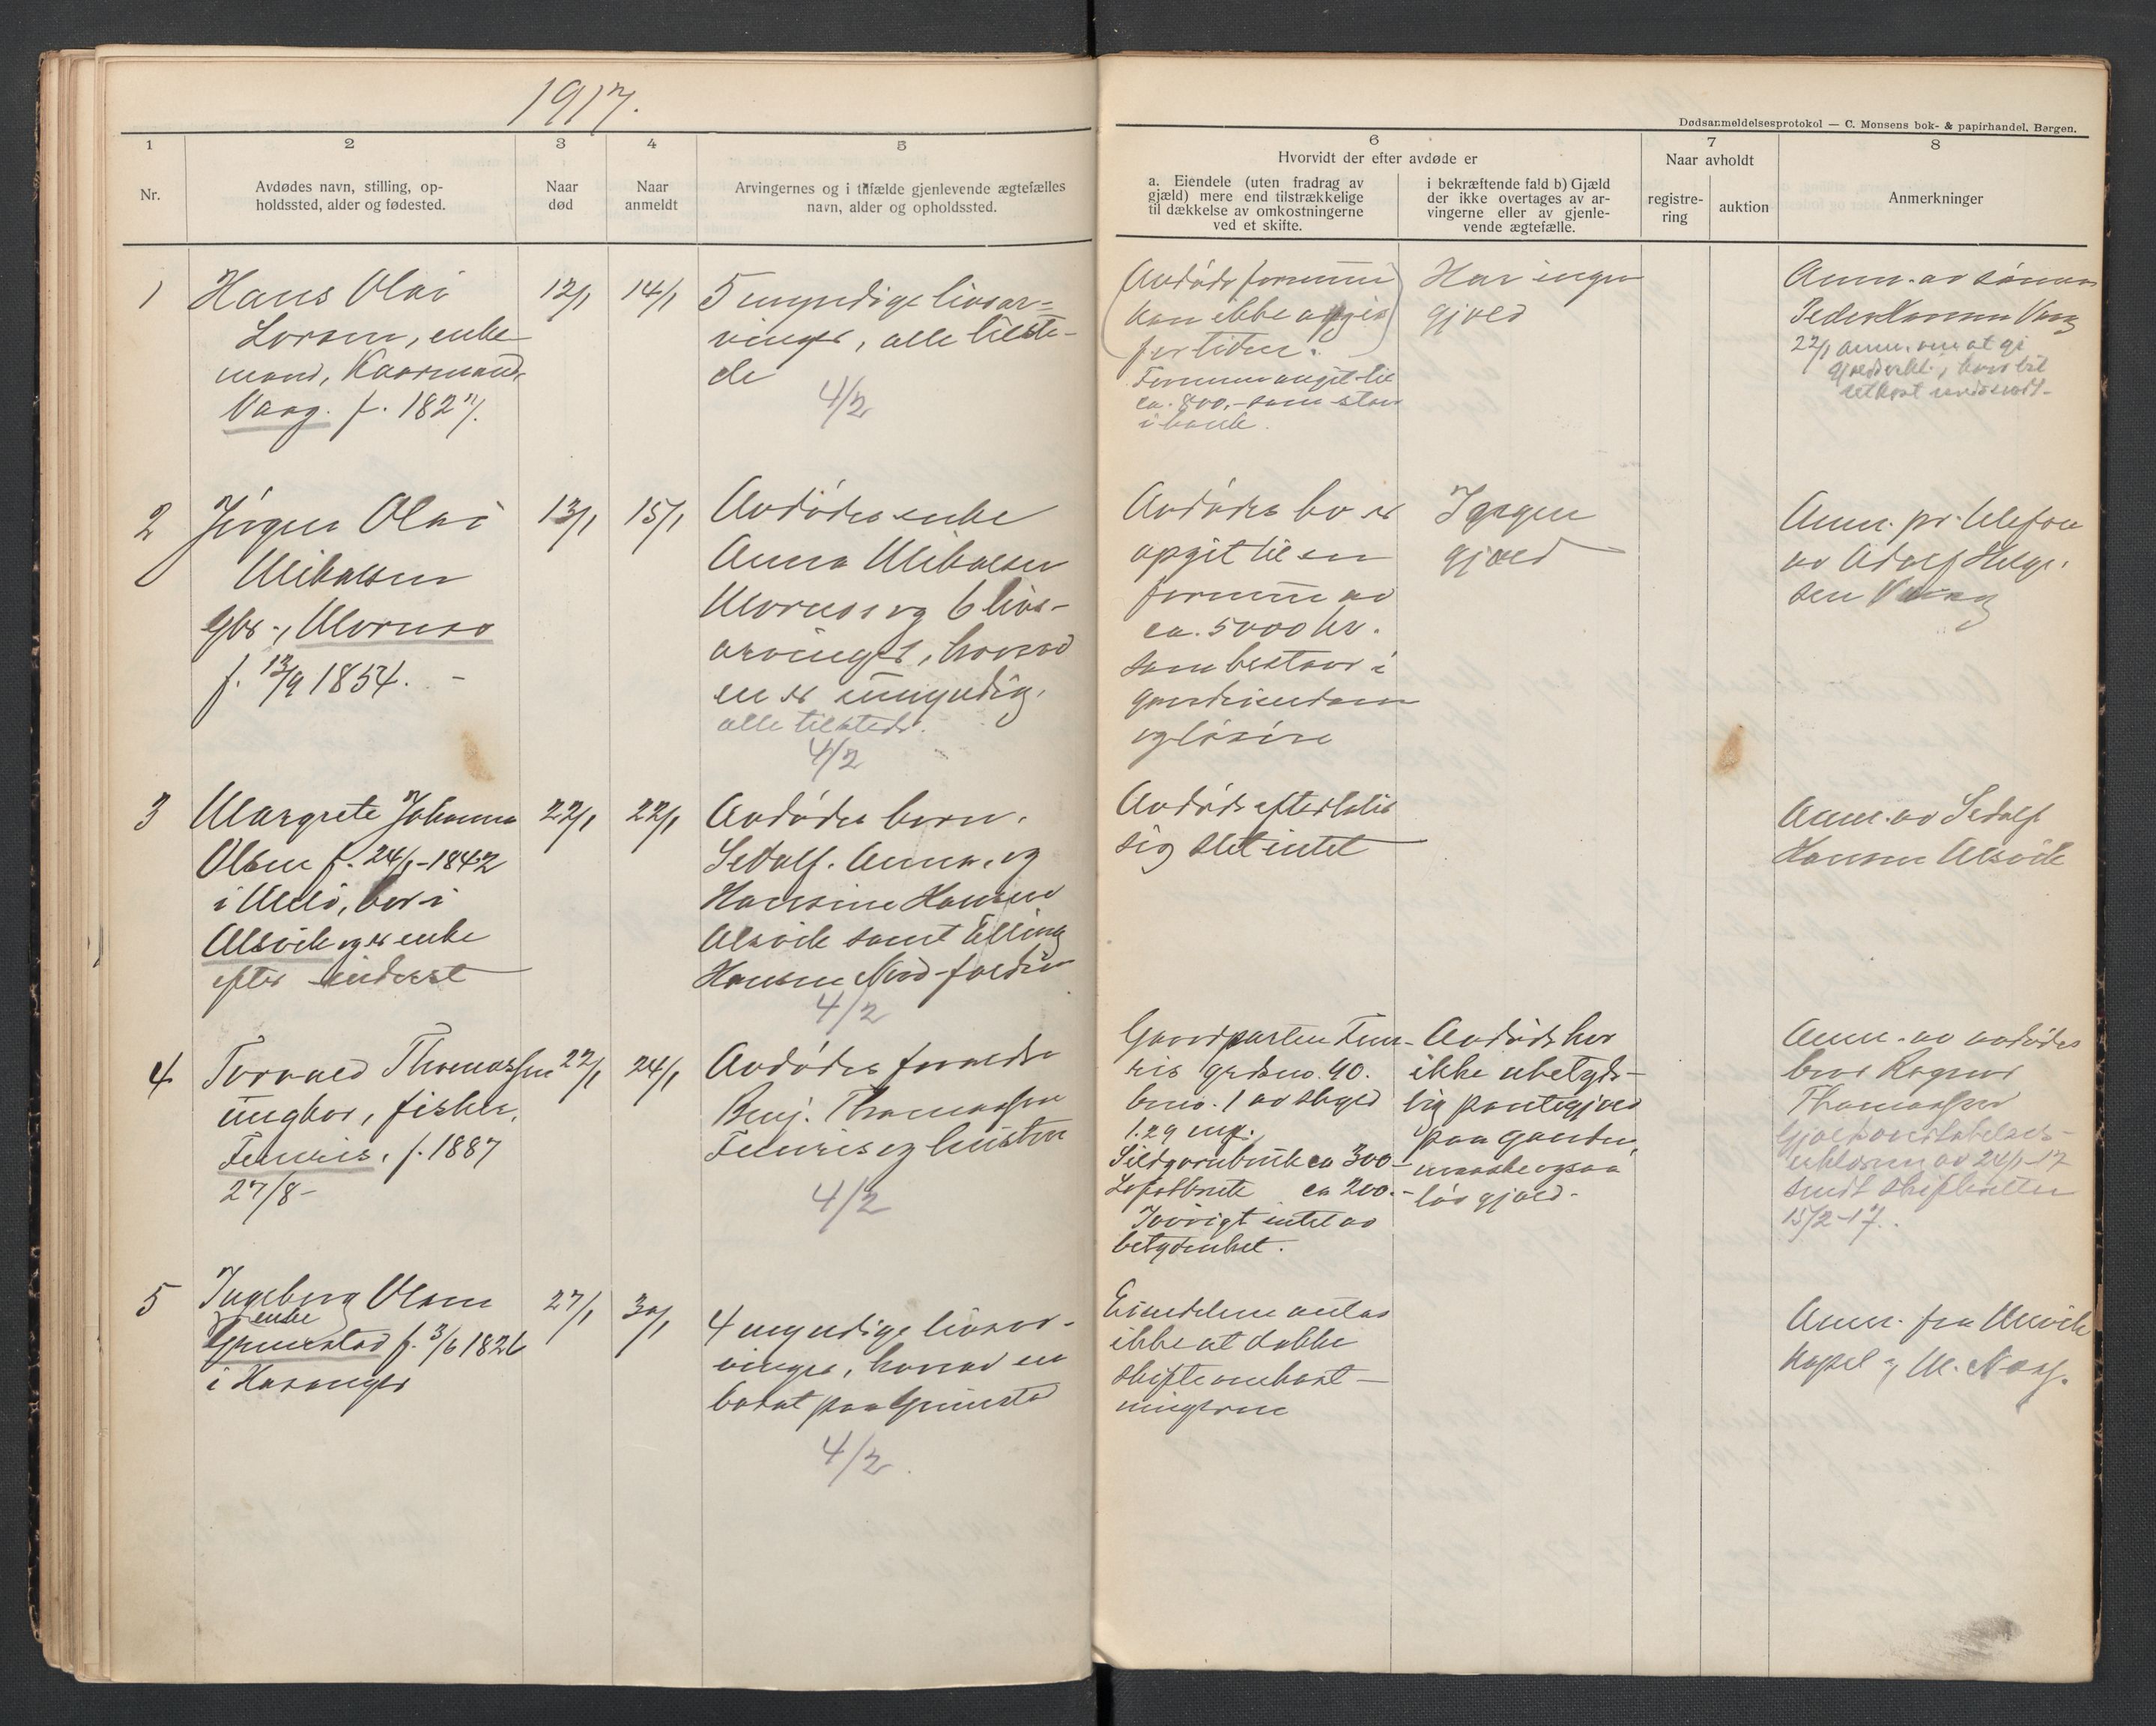 1917.
Dødsanmeldelsesprotokol — C. Monsens bok- & papirhandel. Bergen.
1
2
3
4
5
6
7
8
Nr.
Avdødes navn, stilling, op-
holdssted, alder og fødested.
Naar
død
Naar
anmeldt
Arvingernes og i tilfælde gjenlevende ægtefælles
navn, alder og opholdssted.
Hvorvidt der efter avdøde er
a. Eiendele (uten fradrag av
gjæld) mere end tilstrækkelige
til dækkelse av omkostningerne
ved et skifte.
i bekræftende fald b) Gjæld
der ikke overtages av ar-
vingerne eller av gjenle-
vende ægtefælle.
Naar avholdt
registre-
ring
auktion
Anmerkninger
1
Hans Olai
Larsen, enke
mand, Kaarmand,
Vaag. f. 1827.
12/1
14/1
5 myndige livsar-
vinger, alle tilste-
de
4/2
Avdødes formue
kan ikke opgis
for tiden.
Formuen opgit til
ca. 800,- som staar
i bank.
Har ingen
gjæld
Anm. av sønnen
Peder Hansen Vaag
22/1 anm. om at gi
2
Jørgen Olai
Mikalsen
gbr., Mornes
f. 13/9 1854. -
13/1
15/1
Avdødes enke
Anna Mikalsen
Mornes og 6 livs-
arvinger, hvorav
en er umyndig.
alle tilstede.
4/2
Avdødes bo er
opgit til en
formue av
ca. 5000 kr.
som bestaar i
gaardeiendom
og løsøre
Ingen
gjæld
Anm. pr. telefon
av Adolf Helge-
sen Vaag
3
Margrete Johanna
Olsen f. 24/1-1842
i Melø, bor i
Alsvik og er enke
efter inderst
22/1
22/1
Avdødes børn.
Sedolf. Anna. og
Hansine Hansen
Alsvik samt Elling
Hansen Nord-folden
4/2
Avdøde efterlater
sig slet intet
Anm. av Sedolf
Hansen Alsvik
4
Torvald Thomassen
ungkar, fisker,
Fenris. f. 1887
27/8-
22/1
24/1
Avdødes forældre
Benj. Thomassen
Fenris og hustru
4/2
Gaardparten Fen-
ris grdsno. 90.
bno. 1 av skyld
1.29 mrk.
Sildgarnbruk ca 300-
Lofotbruk ca 200.-
Iøvrigt intet av
betydenhet.
Avdøde har
ikke ubetyde-
lig pantegjæld
paa gaarden,
maaske ogsaa
løs gjæld.
Anm. av avdødes
bror Ragnar
Thomassen
Gjældsovertakelses-
erklæring av 24/1-17
sendt skifteretten
15/2-17.
5
Ingeborg Olsen
enke
Grimstad f. 3/6 1826
i Hasanger
27/1
30/1
4 myndige livsar-
vinger, hvorav en
bosat paa Grimstad
4/2
Eiendelene antas
ikke at dække
skifteomkost-
ningerne
Anm. fra Alsvik
kapel, M. Næss.